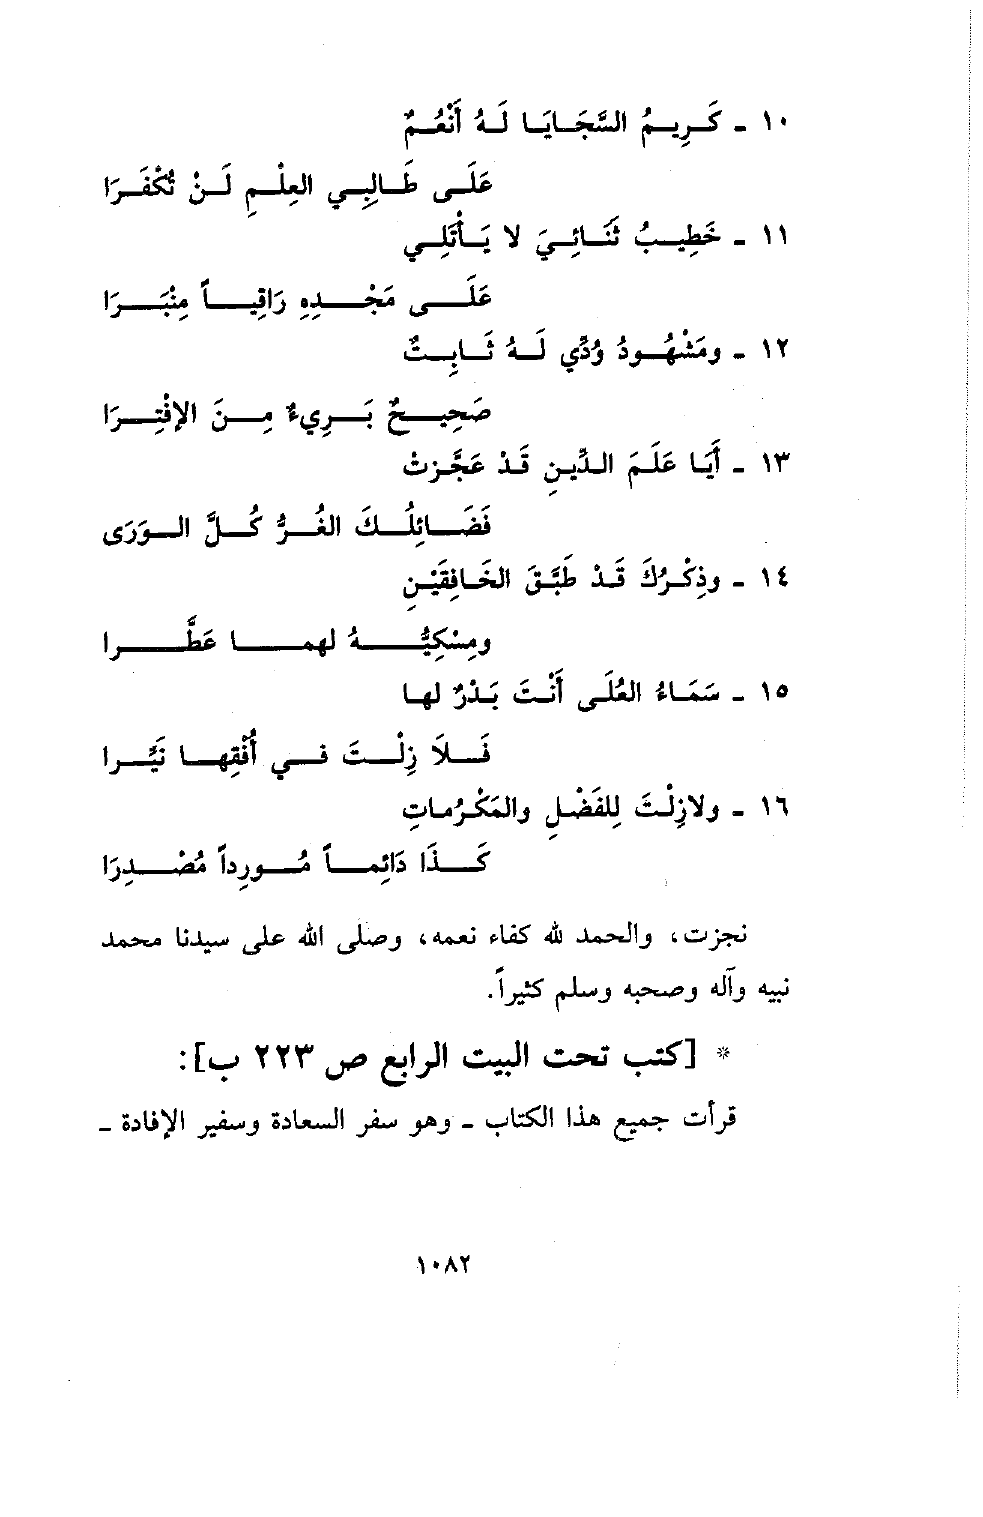 ١٠ ـ كَرِيمُ السَّجَايَا لَهُ أَنْعُمٌ
عَلَى طَالِبِي العِلْمِ لَنْ تُكْفَرَا
١١ ـ خَطِيبُ ثَنَائِيَ لا يَأْتَلِي
عَلَى مَجْدِهِ رَاقِياً مِنْبَرَا
١٢ ـ ومَشْهُودُ وُدِّي لَهُ ثَابِتٌ
صَحِيحٌ بَرِيءٌ مِنَ الإفْتِرَا
١٣ ـ أَيَا عَلَمَ الدِّينِ قَدْ عَجَّزتْ
فَضَائِلُكَ الغُرُّ كُلَّ الوَرَى
١٤ ـ وذِكْرُكَ قَدْ طَبَّقَ الخَافِقَيْنِ
ومِسْكِيُّهُ لهما عَطَّرا
١٥ ـ سَمَاءُ العُلَى أَنْتَ بَدْرٌ لها
فَلاَ زِلْتَ في أُفْقِها نَيِّرا
١٦ ـ ولازِلْتَ لِلفَضْلِ والمَكْرُماتِ
كَذَا دَائِماً مُورِداً مُصْدِرَا
نجزت، والحمد لله كفاء نعمه، وصلى الله على سيدنا محمد
نبيه وآله وصحبه وسلم كثيراً.
* [كتب تحت البيت الرابع ص ٢٢٣ ب]:
قرأت جميع هذا الكتاب ـ وهو سفر السعادة وسفير الإفادة ـ
١٠٨٢